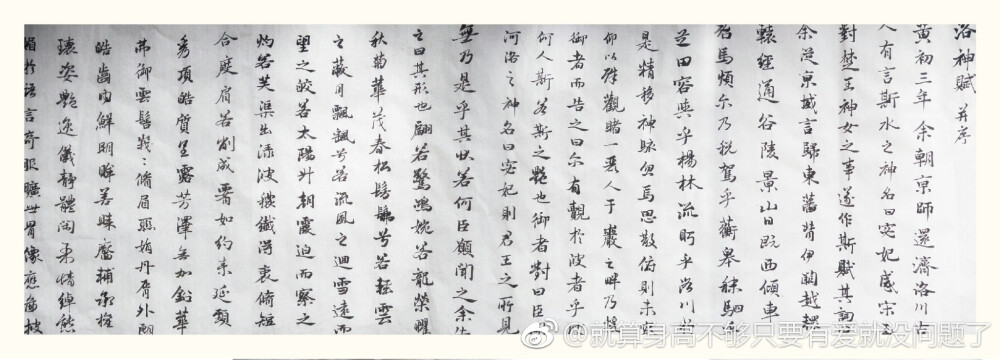 洛神賦 并序
黃初三年余朝京師還濟洛川古
人有言斯水之神名曰宓妃感宋玉
對楚王神女之事遂作斯賦其詞
余從京域言歸東藩背伊闕越轘
轅經通谷陵景山日既西傾車
殆馬煩尔乃稅駕乎蘅皋秣駟
芝田容與乎楊林流眄乎洛川於
是精移神駭忽焉思散俯則未察
仰以殊觀睹一麗人于巖之畔乃援
御者而告之曰尔有覿於彼者乎此
何人斯若斯之豔也御者對曰臣
河洛之神名曰宓妃則君王之所見
無乃是乎其狀若何臣願聞之余告
之曰其形也翩若驚鴻婉若龍榮曜
秋菊華茂春松髣髴兮若輕雲
之蔽月飄颻兮若流風之迴雪遠而
望之皎若太陽升朝霞迫而察之
灼若芙渠出淥波穠纖得衷脩短
合度肩若削成署如約素延頸
秀項皓質呈露芳澤無加鉛華
弗御雲髻峩〻脩眉聯娟丹脣外朗
皓齒內鮮明眸善睞靨輔承權
瓌姿豔逸儀靜體閑柔情綽態
媚於語言奇服曠世骨像應圖披
@就算身高不够只要有爱就没问题了